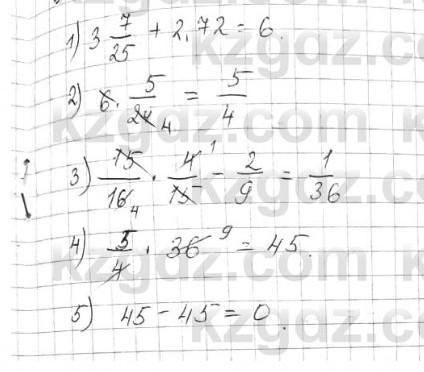 1) 3 7/25 + 2,72 = 6.
2) 6 · 5/24 4 = 5/4
3) 15/16 4 · 4 1/15 - 2/9 = 1/36
4) 5/4 · 36 9 = 45.
5) 45 - 45 = 0.
kzgdz.com